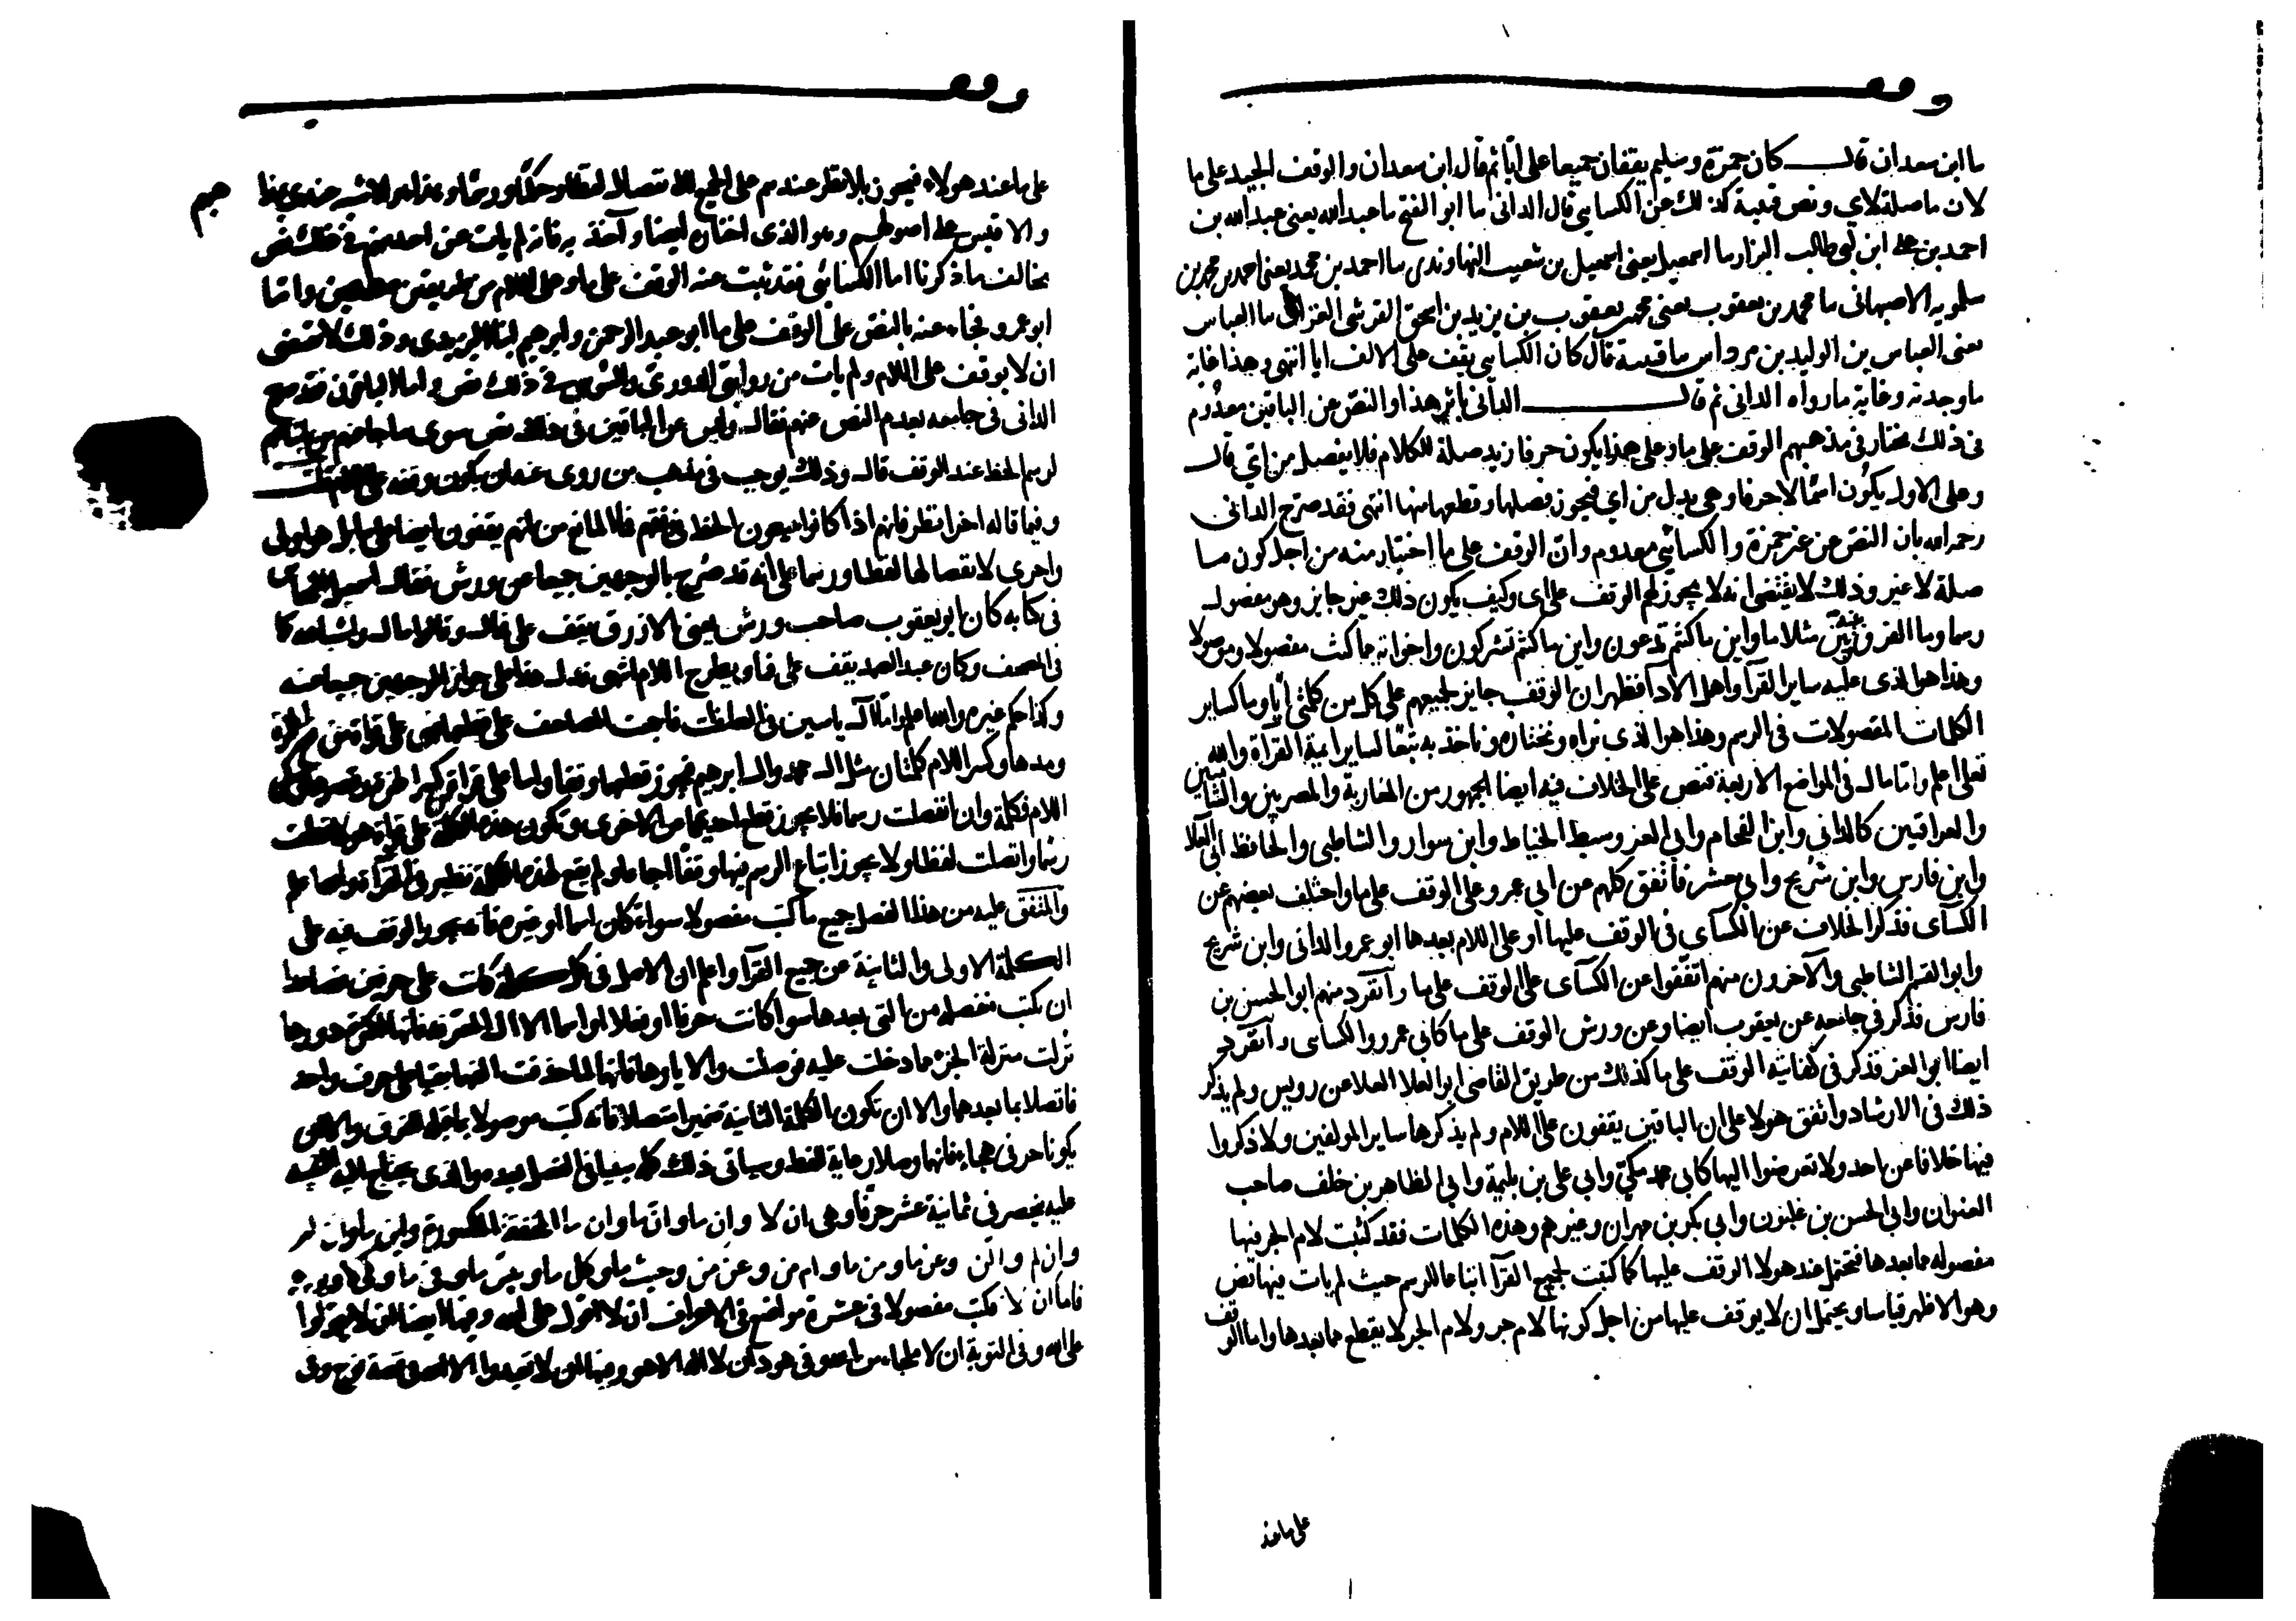 وقف
ما ابن سعدان قال كان حمزة وسليم يقفان جميعا على ايا ثم قال ابن سعدان والوقف الجيد على ما
لان ما صلة لاي ونص قتيبة كذلك عن الكسايي قال الداني ما ابو الفتح ما عبد الله يعني عبد الله بن
احمد بن علي ابن ابي طالب البزار ما اسمعيل يعني اسمعيل بن شعيب النهاوندي ما احمد بن محمد يعني احمد بن محمد بن
سلمويه الاصبهاني ما محمد بن يعقوب يعني محمد بن يعقوب بن يزيد بن اسحق القرشي الغزالي ما العباس
يعني العباس بن الوليد بن مرداس ما قتيبة قال كان الكسايي يقف على الالف ايا انتهى وهذا غاية
ما وجدته وغاية ما رواه الداني ثم قال الداني باثر هذا والنص عن الباقين معدوم
في ذلك نختار في مذهبهم الوقف على ما وعلى هذا يكون حرفا زيد صلة للكلام فلا يفصل من اي قال
وعلى الاول يكون اسما لا حرفا وهي بدل من اي فيجوز فصلها وقطعها منها انتهى فقد صرح الداني
رحمه الله بان النص عن غير حمزة والكسائي معدوم وان الوقف على ما اختيار منه من اجل كون ما
صلة لا غير وذلك لا يقتضي انه لا يجوز لهم الوقف على اي وكيف يكون ذلك غير جايز وهو مفصول
رسما وما الفرق بينه وبين مثلا ما واين ما كنتم تدعون واين ما كنتم تشركون واخواته مما كتب مفصولا وموصولا
وهذا هو الذي عليه ساير القرآ واهل الادآ فظهر ان الوقف جايز لجميعهم على كل من كلمتي ايا وما كساير
الكلمات المفصولات في الرسم وهذا هو الذي نراه ونختاره وناخذ به تبعا لساير ايمة القرآة والله
تعالى اعلم واما مال في المواضع الاربعة فنص على الخلاف فيه ايضا الجمهور من المغاربة والمصريين والشاميين
والعراقيين كالداني وابن الفحام وابي العز وسبط الخياط وابن سوار والشاطبي والحافظ ابي العلا
وابن فارس وابن شريح وابي معشر فاتفق كلهم عن ابي عمرو على الوقف على ما واختلف بعضهم عن
الكسآى فذكر الخلاف عن الكسآى في الوقف عليها او على اللام بعدها ابو عمرو الداني وابن شريح
وابو القسم الشاطبي والآخرون منهم اتفقوا عن الكسآى على الوقف على ما وآنفرد منهم ابو الحسن بن
فارس فذكر في جامعه عن يعقوب ايضا وعن ورش الوقف على ما كابي عمرو والكساى وآنفرد
ايضا ابو العز فذكر في كفايته الوقف على ما كذلك من طريق القاضي ابو العلا العلا عن رويس ولم يذكر
ذلك في الارشاد واتفق هولا على ان الباقين يقفون على اللام ولم يذكرها ساير المولفين ولا ذكروا
فيها خلافا عن احد ولا تعرضوا اليها كابي محمد مكي وابي على بن بليمة وابي الطاهر بن خلف صاحب
العنوان وابي الحسن بن غلبون وابي بكر بن مهران وغيرهم وهذه الكلمات فقد كتبت لام الجر فيها
مفصوله مما بعدها فيحتمل عند هولا الوقف عليها كما كتبت لجميع القرآ اتباعا للرسم حيث لم يات فيها نص
وهو الاظهر قياسا ويحتمل ان لا يوقف عليها من اجل كونها لام جر ولام الجر لا يقطع مما بعدها واما الوقف
على ما عند
وقف
على ما عند هولاء فيجوز بلا نظر عندهم على الجميع للانفصال لفظا وحكما ورسما وهذا هو الاشبه عندي بمذاهبهم
والاقيس على اصولهم وهو الذي اختاره ايضا وآخذ به فانه لم يات عن احد منهم في ذلك نص
يخالف ما ذكرنا اما الكسائي فقد ثبت عنه الوقف على ما وعلى اللام من طريقين صحيحين واما
ابو عمرو فجاء عنه بالنص على الوقف على ما ابو عبد الرحمن وابرهيم ابنا اليزيدي وذلك لا يقتضي
ان لا يوقف على اللام ولم يات من روايتي الدوري والسوسي في ذلك نص واما الباقون فقد صرح
الداني في جامعه بعدم النص عنهم فقال وليس عن الباقين في ذلك نص سوى ما جا عنهم من اتباعهم
لرسم الخط عند الوقف قال وذلك يوجب في مذهب من روى عنه ان يكون وقفه على اللام قلت
وفيما قاله اخرا نظر فانهم اذا كانوا يتبعون الخط في وقفهم فما المانع من انهم يقفون ايضا على ما بل هو اولى
واحرى لانفصالها لفظا ورسما على انه قد صرح بالوجهين جميعا عن ورش فقال اسمعيل النحاس
في كتابه كان ابو يعقوب صاحب ورش يعني الازرق يقف على فمال وقالوا مال واشباهه كما
في المصحف وكان عبد الصمد يقف على فما ويطرح اللام انتهى فدل هذا على جواز الوجهين جميعا عنه
وكذا حكم غيره والله اعلم واما آل ياسين في الصافات فاجمعت المصاحف على قطعها فهي على قراة من فتح الهمزة
ومدها وكسر اللام كلمتان مثل آل محمد وآل ابرهيم فيجوز قطعهما وقفا واما على قراة من كسر الهمزة وقصرها وسكن
اللام فكلمة وان انفصلت رسما فلا يجوز قطع احديهما من الاخرى وتكون هذه الكلمة على قراة هولا قطعت
رسما واتصلت لفظا ولا يجوز اتباع الرسم فيها وقفا اجماعا ولم يقع لهذه الكلمة نظير في القرآة والله اعلم
والمتفق عليه من هذا الفصل جميع ما كتب مفصولا سواء كان اسما او غيره فانه يجوز الوقف فيه على
الكلمة الاولى والثانية عن جميع القرآ واعلم ان الاصل في كل كلمة كانت على حرفين فصاعدا
ان تكتب منفصله من التي بعدها سوا كانت حرفا او فعلا او اسما الا ال المعرفة فانها لكثرة دورها
نزلت منزلة الجزء مما دخلت عليه فوصلت والا ياوها فانها لما حذفت الفها بقيا على حرف واحد
فاتصلا بما بعدهما والا ان تكون الكلمة الثانية ضميرا متصلا فانه كتب موصولا بما قبله للفرق والا ان
يكونا حرفي هجاء فانهما وصلا رعاية للفظ وسياتي ذلك كله مبينا في الفصل بعد هو والذي يحتاج الى التنبيه
عليه ينحصر في ثمانية عشر حرفا وهي ان لا وان ما وان ما وان ما المخففة المكسورة واين ما وان لم
وان لم وان لن وعن ما ومن ما وام من وعن من وحيث ما وكل ما وبئس ما وفي ما وكي لا ويوم هم
فاما ان لا فكتب مفصولا في عشرة مواضع في الاعراف ان لا اقول على الله وفيها ايضا ان لا يقولوا
على الله وفي التوبة ان لا ملجاء من الله وفي هود ان لا اله الا هو وفيها ان لا تعبدوا الا الله في قصة نوح وفي